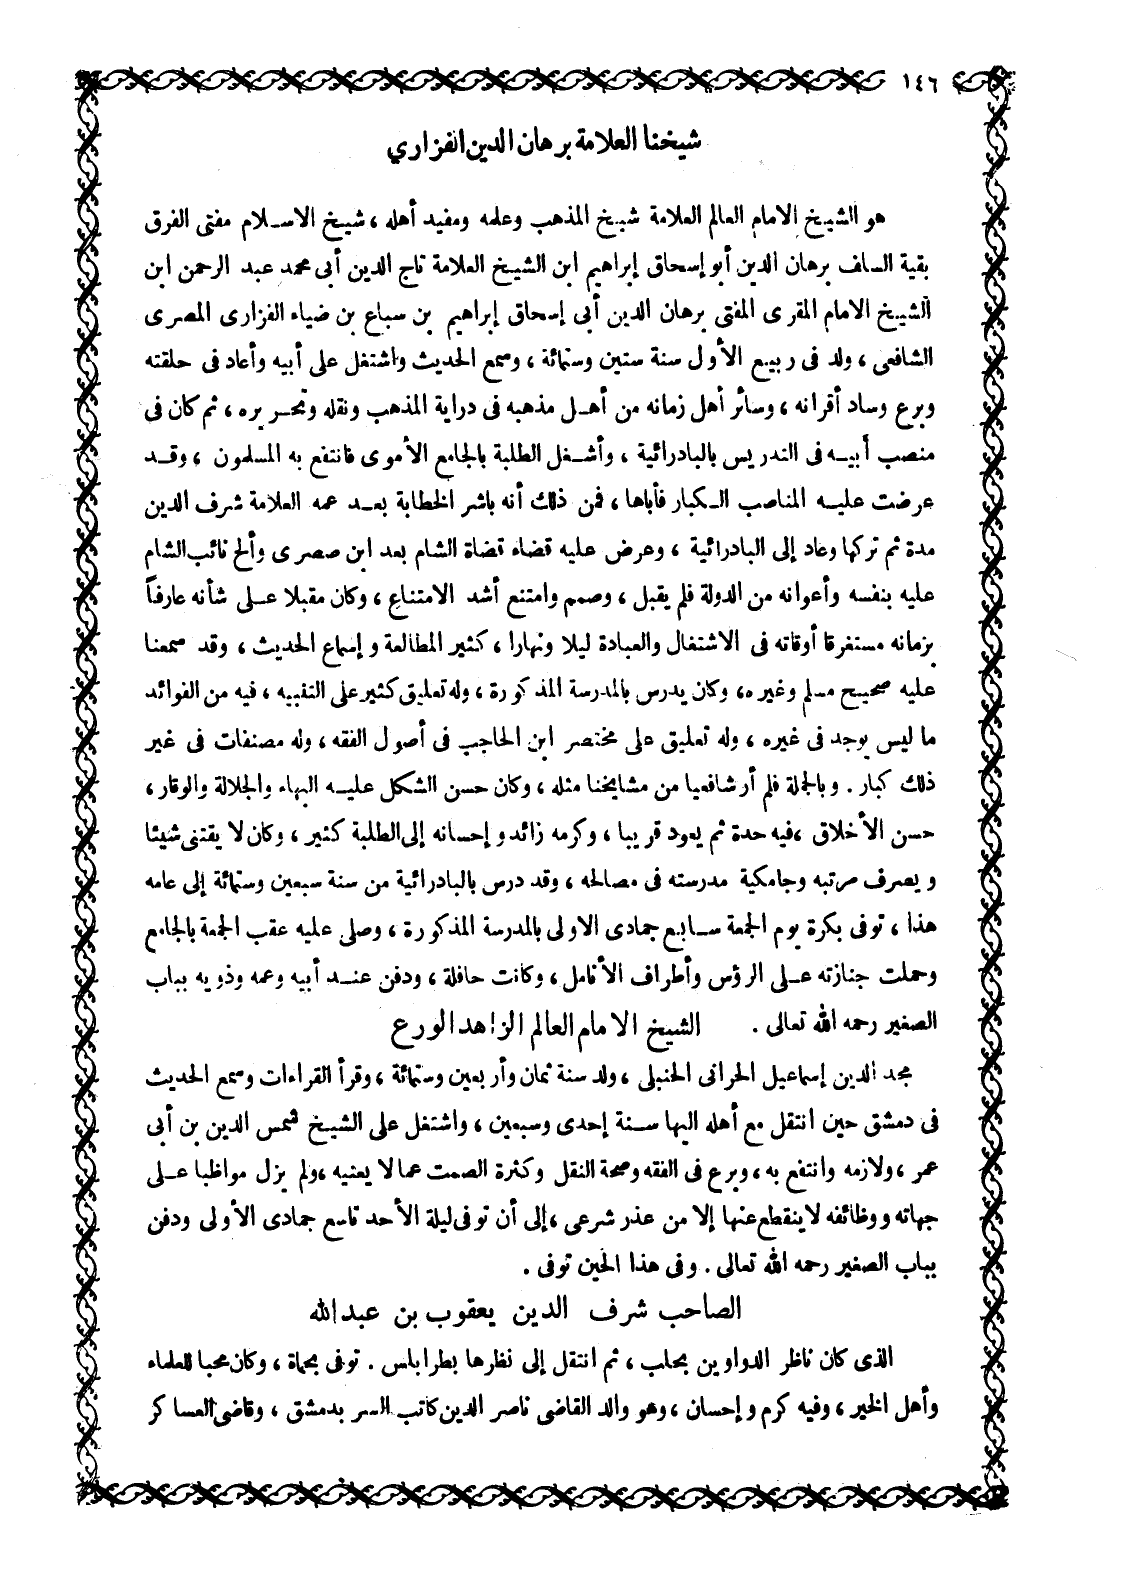 ١٤٦
شيخنا العلامة برهان الدين الفزاري
هو الشيخ الامام العالم العلامة شيخ المذهب وعلمه ومفيد أهله ، شيخ الاسلام مفتى الفرق
بقية السلف برهان الدين أبو إسحاق إبراهيم ابن الشيخ العلامة تاج الدين أبى محمد عبد الرحمن ابن
الشيخ الامام المقرى المفتى برهان الدين أبى إسحاق إبراهيم بن سباع بن ضياء الفزارى المصرى
الشافعى ، ولد فى ربيع الأول سنة ستين وستمائة ، وسمع الحديث واشتغل على أبيه وأعاد فى حلقته
وبرع وساد أقرانه ، وسائر أهل زمانه من أهل مذهبه فى دراية المذهب ونقله وتحريره ، ثم كان فى
منصب أبيه فى التدريس بالبادرائية ، وأشغل الطلبة بالجامع الأموى فانتفع به المسلمون ، وقد
عرضت عليه المناصب الكبار فأباها ، فمن ذلك أنه باشر الخطابة بعد عمه العلامة شرف الدين
مدة ثم تركها وعاد إلى البادرائية ، وعرض عليه قضاء قضاة الشام بعد ابن صصرى وألح نائب الشام
عليه بنفسه وأعوانه من الدولة فلم يقبل ، وصمم وامتنع أشد الامتناع ، وكان مقبلا على شأنه عارفاً
بزمانه مستغرقا أوقاته فى الاشتغال والعبادة ليلا ونهارا ، كثير المطالعة وإسماع الحديث ، وقد سمعنا
عليه صحيح مسلم وغيره ، وكان يدرس بالمدرسة المذكورة ، وله تعليق كثير على التنبيه ، فيه من الفوائد
ما ليس يوجد فى غيره ، وله تعليق على مختصر ابن الحاجب فى أصول الفقه ، وله مصنفات فى غير
ذلك كبار . وبالجملة فلم أر شافعيا من مشايخنا مثله ، وكان حسن الشكل عليه البهاء والجلالة والوقار ،
حسن الأخلاق ، فيه حدة ثم يعود قريبا ، وكرمه زائد وإحسانه إلى الطلبة كثير ، وكان لا يقتنى شيئا
ويصرف مرتبه وجامكية مدرسته فى مصالحه ، وقد درس بالبادرائية من سنة سبعين وستمائة إلى عامه
هذا ، توفى بكرة يوم الجمعة سابع جمادى الاولى بالمدرسة المذكورة ، وصلى عليه عقب الجمعة بالجامع
وحملت جنازته على الرؤس وأطراف الأنامل ، وكانت حافلة ، ودفن عند أبيه وعمه وذويه بباب
الصغير رحمه الله تعالى . الشيخ الامام العالم الزاهد الورع
مجد الدين إسماعيل الحرانى الحنبلى ، ولد سنة ثمان وأربعين وستمائة ، وقرأ القراءات وسمع الحديث
فى دمشق حين انتقل مع أهله اليها سنة إحدى وسبعين ، واشتغل على الشيخ شمس الدين بن أبى
عمر ، ولازمه وانتفع به ، وبرع فى الفقه وصحة النقل وكثرة الصمت عما لا يعنيه ، ولم يزل مواظبا على
جهاته ووظائفه لا ينقطع عنها إلا من عذر شرعى ، إلى أن توفى ليلة الأحد تاسع جمادى الأولى ودفن
بباب الصغير رحمه الله تعالى . وفى هذا الحين توفى .
الصاحب شرف الدين يعقوب بن عبد الله
الذى كان ناظر الدواوين بحلب ، ثم انتقل إلى نظرها بطرابلس . توفى بحماة ، وكان محبا للعلماء
وأهل الخير ، وفيه كرم وإحسان ، وهو والد القاضى ناصر الدين كاتب السر بدمشق ، وقاضى العساكر